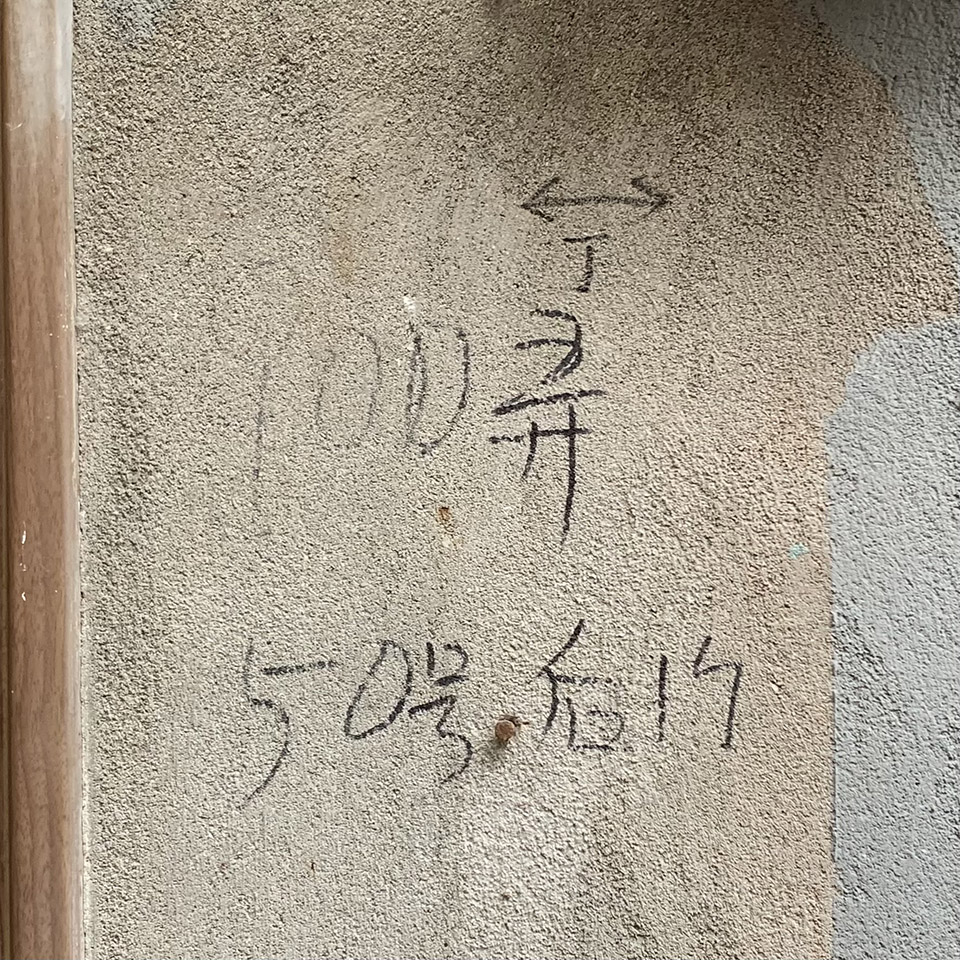 ↔
丁
100弄
50号后门